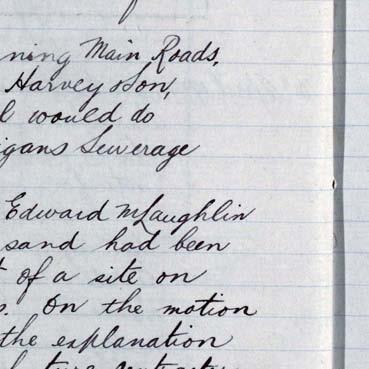 ning Main Roads,
Harvey & Son,
l would do
igans Sewerage
Edward McLaughlin
sand had been
of a site on
s. On the motion
the explanation